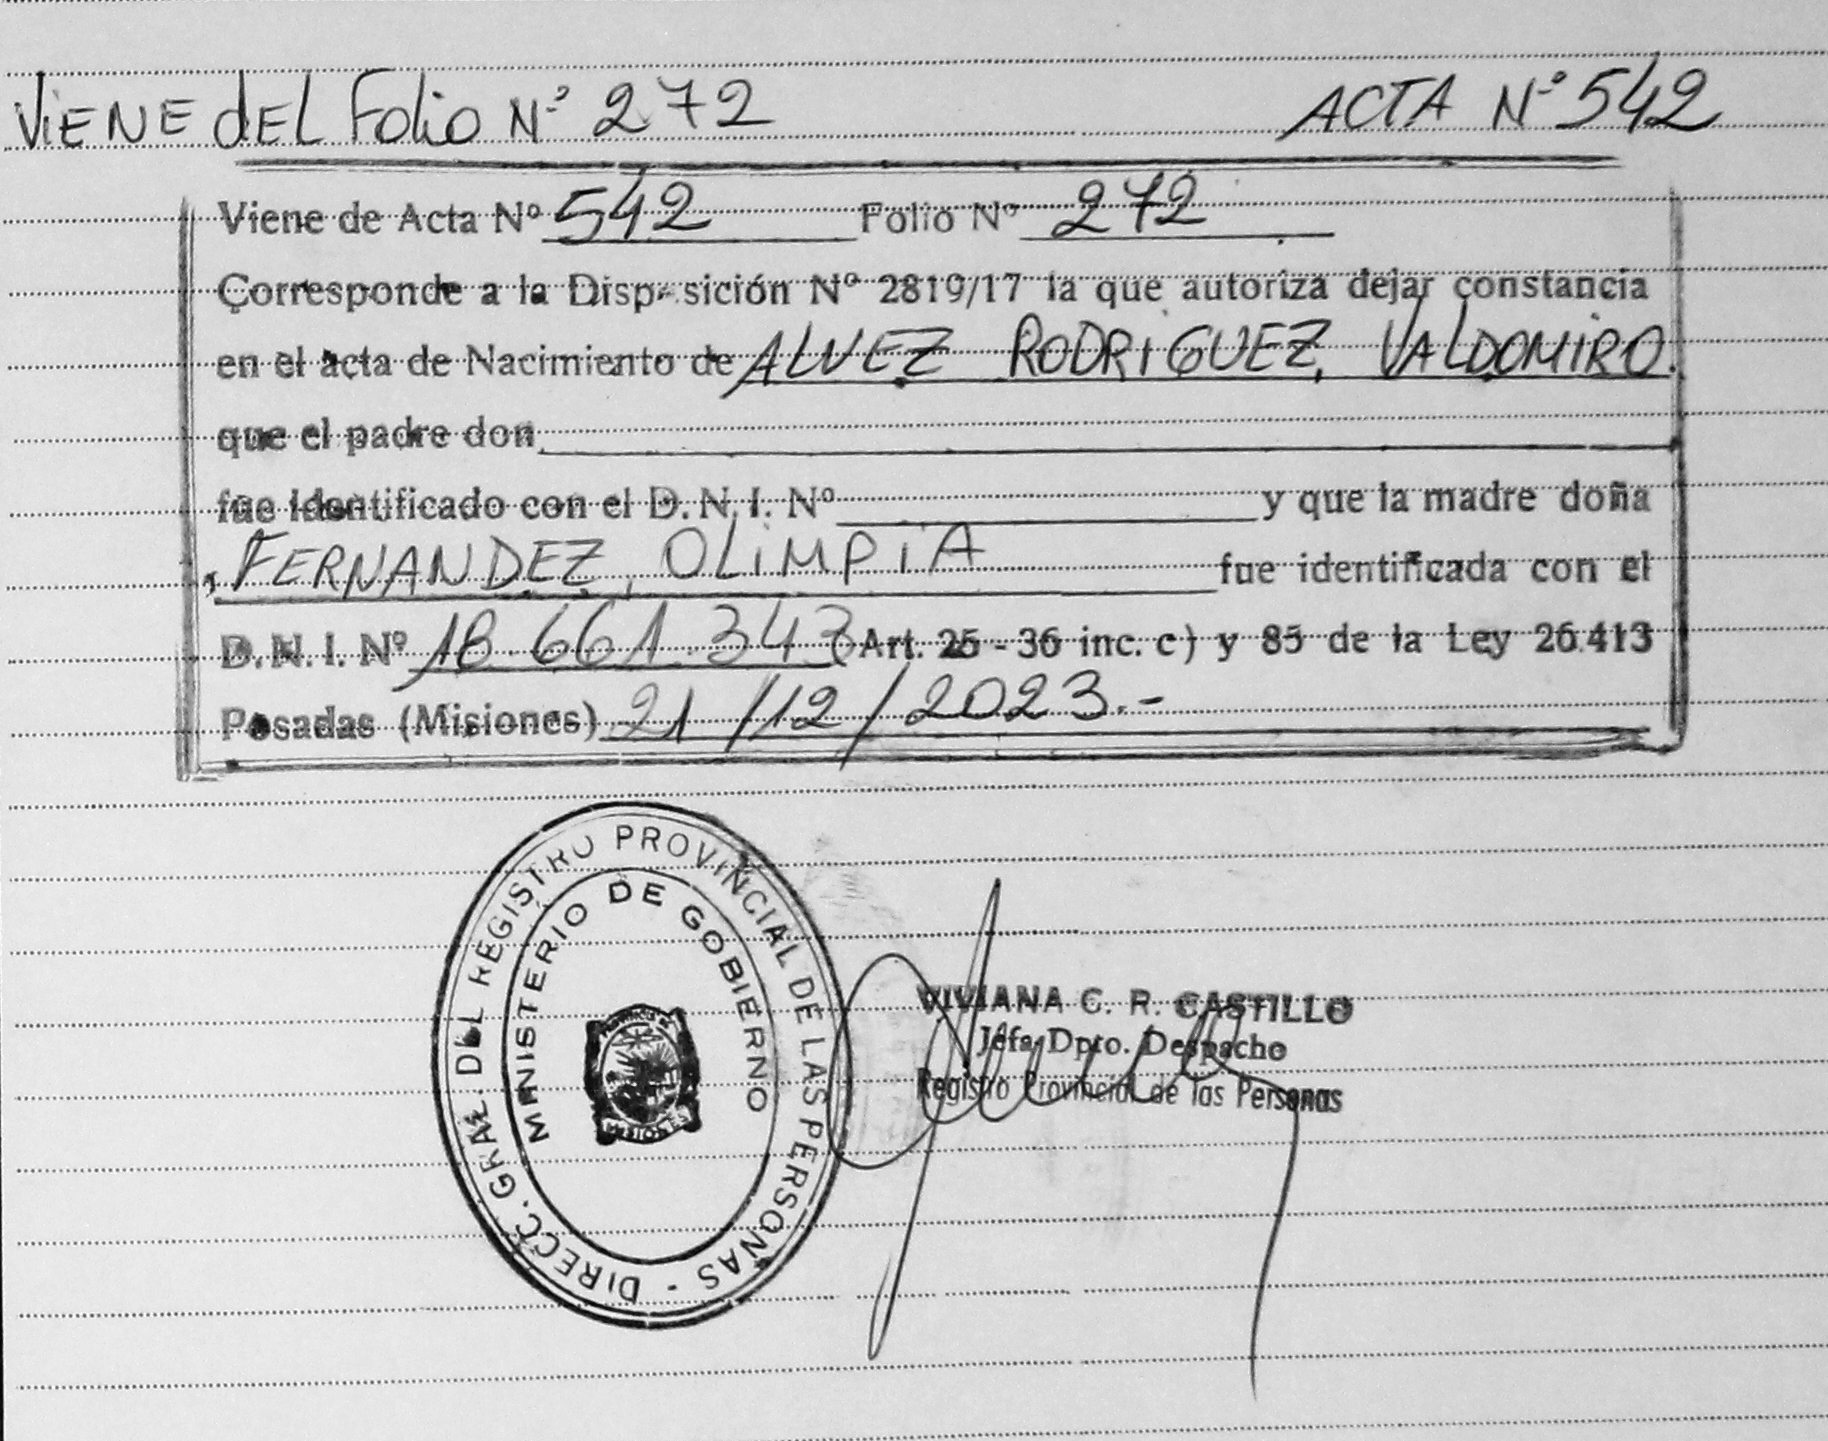 ViENE dEL Folio Nº 272 ACTA Nº 542
Viene de Acta Nº 542 Folio Nº 272
Corresponde a la Disp- sición Nº 2819/17 la que autoriza dejar constancia
en el acta de Nacimiento de ALVEZ RODRIGUEZ, VALDOMIRO.
que el padre don
fue identificado con el D.N.I. Nº y que la madre doña
FERNANDEZ, OLiMPiA fue identificada con el
D.N.I. Nº 18.661.343 (Art. 25 - 36 inc. c) y 85 de la Ley 26.413
Posadas (Misiones) 21/12/2023.-
DIRECC. GRAL. DEL REGISTRO PROVINCIAL DE LAS PERSONAS -
MINISTERIO DE GOBIERNO
PROVINCIA DE
MISIONES
VIVIANA C. R. CASTILLO
Jefa Dpto. Despacho
Registro Provincial de las Personas